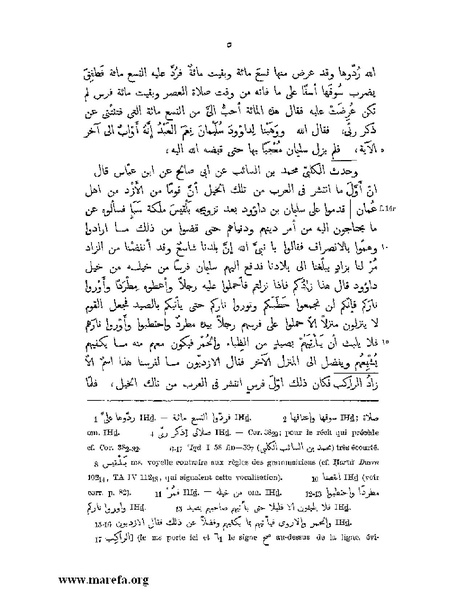 ٥
الله رُدّوها وقد عرض منها تسع مائة وبقيت مائةٌ فرُدّ عليه التسع مائة فطَفِقَ
يضرب سُوقَها أسفًا على ما فاته من وقت صلاة العصر وبقيت مائة فرس لم
تكن عُرِضَتْ عليه فقال هذه المائة أحبُّ إليَّ من التسع مائة التى فتنتنى عن
ذكر ربّى، فقال الله وَوَهَبْنا لِداوُودَ سُلَيْمَانَ نِعْمَ العَبْدُ إنَّهُ أَوّابٌ الى آخر
٥ الآية، فلم يزل سليمان مُعْجَبًا بها حتى قبضه الله اليه،
وحدث الكلبىّ محمد بن السائب عن ابى صالح عن ابن عبّاس قال
انّ أوّلَ ما انتشر فى العرب من تلك الخيل أنّ قومًا من الأَزْد من اهل
عُمان | قدموا على سليمان بن داوُود بعد تزويجه بَلْقِيسَ ملكة سَبَإ فسألوه عن f. 14r
ما يحتاجون اليه من أمر دينهم ودنياهم حتى قضوا من ذلك ما ارادوا
١٠ وهمّوا بالانصراف فقالوا يا نبىّ الله إنّ بلدنا شاسعٌ وقد أنفضْنا من الزاد
مُرْ لنا بزادٍ يبلّغنا الى بلادنا فدفع اليهم سليمان فرسًا من خيله من خيل
داوُود قال هذا زادُكم فاذا نزلتم فاحملوا عليه رجلاً وأعطوه مِطْرَدًا وأَوْرُوا
ناركم فإنّكم لن تجمعوا حَطَبَكم وتوروا ناركم حتى يأتيكم بالصيد فجعل القوم
لا ينزلون منزلاً الاّ حملوا على فرسهم رجلاً بيده مطرد واحتطبوا وأَوْرَوا نارهم
١٥ فلا يلبث أن يَأْتِيَهُمْ بصيدٍ من الظِباء والحُمر فيكون معهم منه ما يكفيهم
يُشْبِعُهم ويفضل الى المنزل الآخر فقال الازديّون ما لفرسنا هذا اسم الاّ
زادُ الرَّاكب فكان ذلك اوّل فرس انتشر فى العرب من تلك الخيل، فلمّا
1 رُدّوها علىّ IHd. — فرّدوا التسع مائة IHd. 2 سوقها وأعناقها IHd; صلاة
om. IHd. 4 صلاتى [ذكر ربّى IHd. — Cor. 38₂₉; pour le récit qui précède
cf. Cor. 38₃₀,₃₂. 6-17 ʿIqd I 58 fin—59₇ (محمد بن السائب الكلبى) très écourté.
8 بَلْقِيس ms. voyelle contraire aux règles des grammairiens (cf. Ḥarīrī Durra
192₁₄, TA IV 112₁₈, qui signalent cette vocalisation). 10 IHd (voir
corr. p. 82). 11 فمُرْ IHd. — من خيله om. IHd. 12-13 مطردًا واحتطبوا
وأوروا ناركم IHd. 13
15-16
17 الرَّاكِب] (le mẹ porte ici et le signe صح au-dessus de la ligne, ori-
www.marefa.org